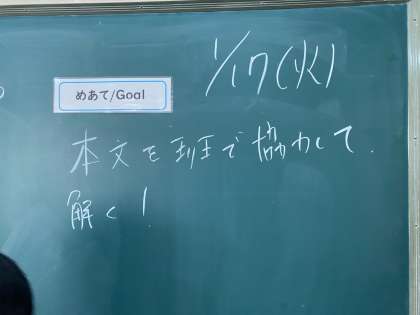 1/17(火)
めあて/Goal
本文を班で協力して
解く!